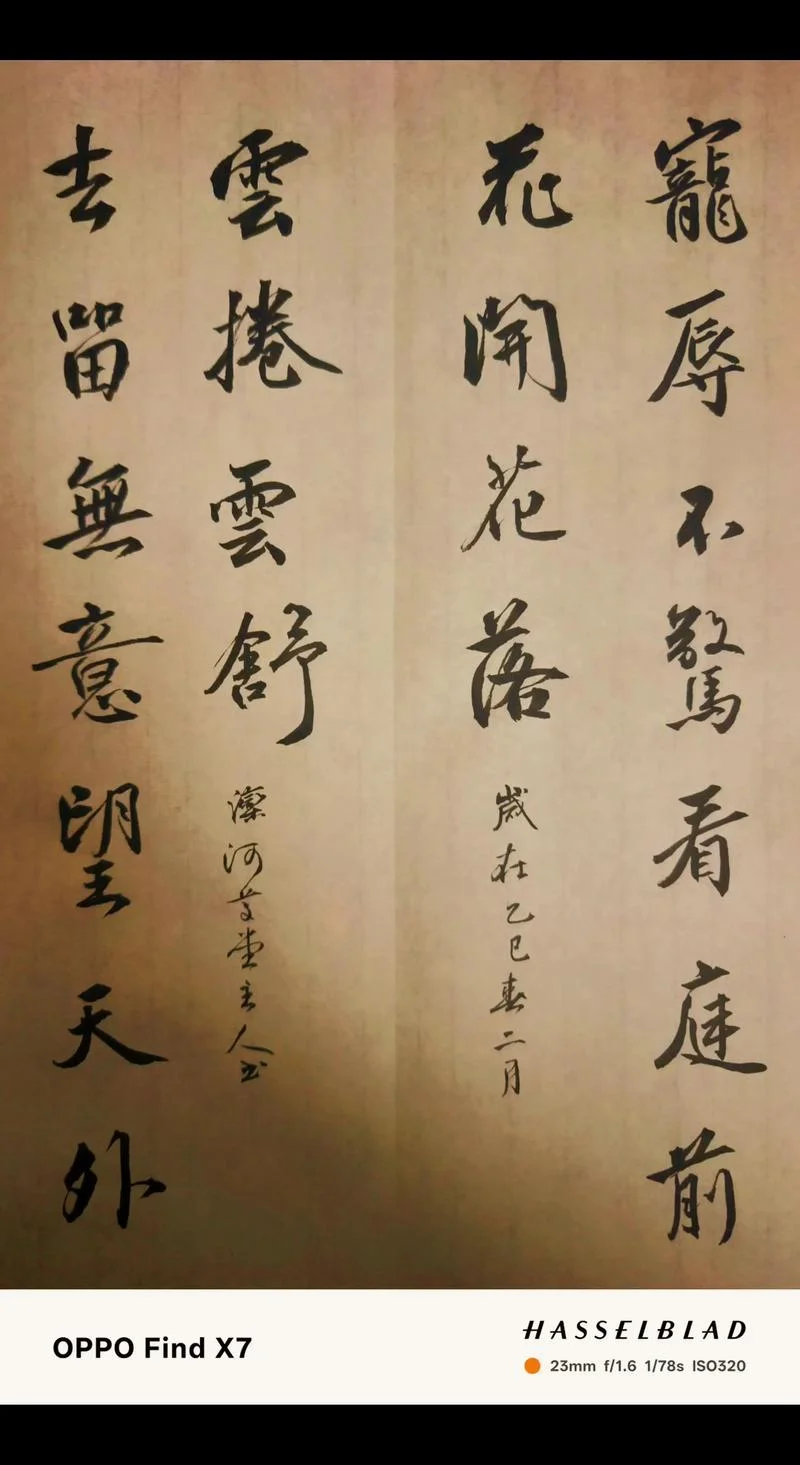 寵辱不驚看庭前
花開花落
歲在乙巳春二月
去留無意望天外
雲捲雲舒
河草堂主人书
OPPO Find X7
HASSELBLAD
23mm f/1.6 1/78s ISO320